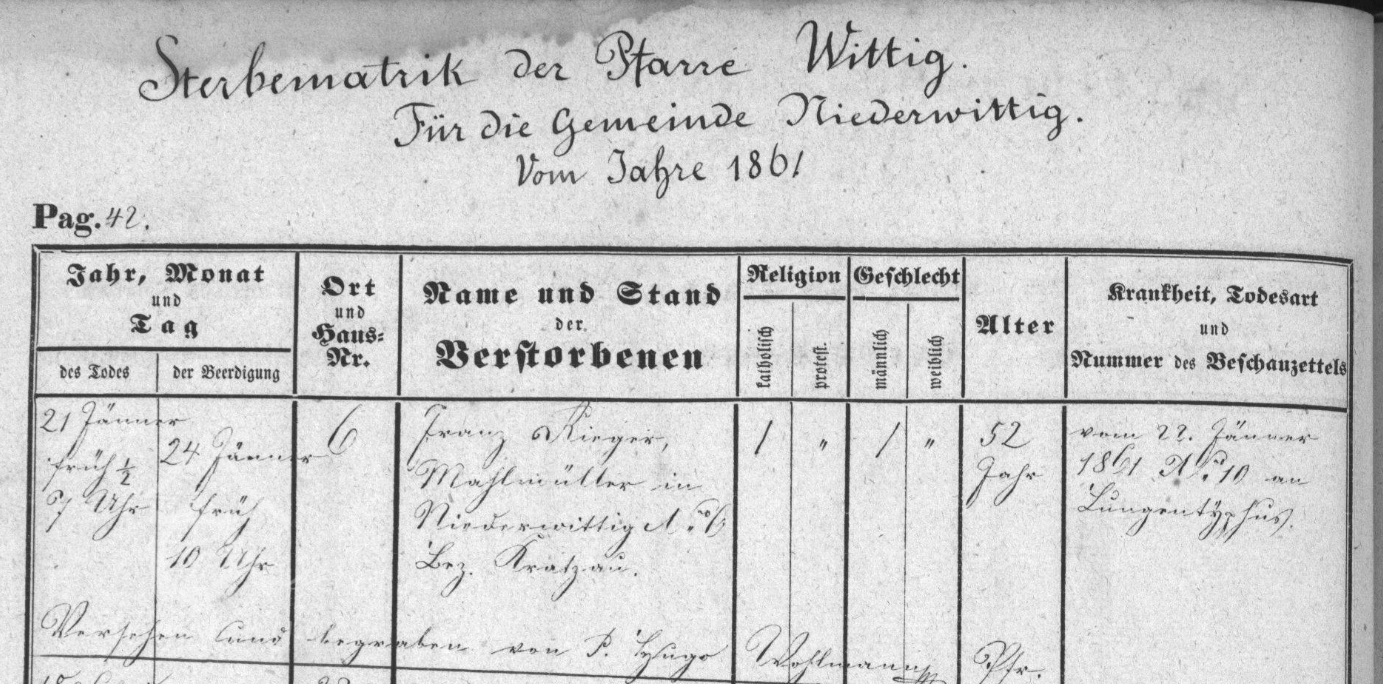 Sterbematrik der Pfarre Wittig.
Für die Gemeinde Niederwittig.
Vom Jahre 1861
Pag. 42.
Jahr, Monat
und
Tag
des Todes
der Beerdigung
Ort
und
Haus-
Nr.
Name und Stand
der
Verstorbenen
Religion
katholisch
protest.
Geschlecht
männlich
weiblich
Alter
Krankheit, Todesart
und
Nummer des Beschauzettels
21 Jänner
früh ½
7 Uhr
24 Jänner
früh
10 Uhr
6
Franz Rieger,
Mahlmüller in
Niederwittig No 6
Bez. Kratzau.
1
"
1
"
52
Jahr
vom 22. Jänner
1861 No 10 an
Lungentyphus.
Versehen und begraben von P. Hugo Wohlmann Pfr.